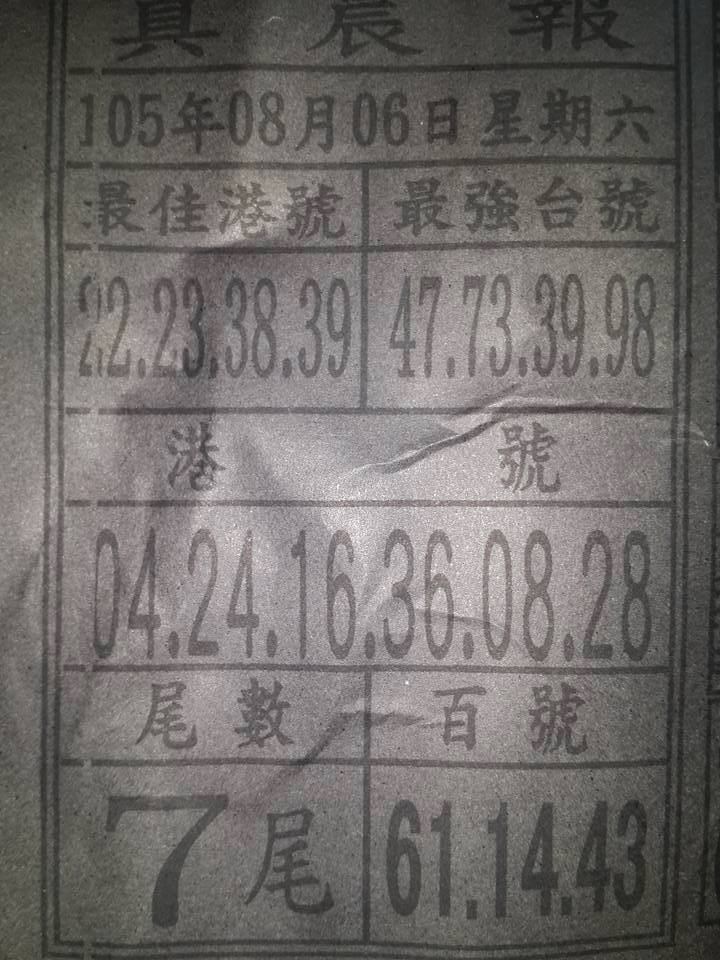 真晨報
105年08月06日星期六
最佳港號 最強台號
22.23.38.39 47.73.39.98
港號
04.24.16.36.08.28
尾數 百號
7尾 61.14.43